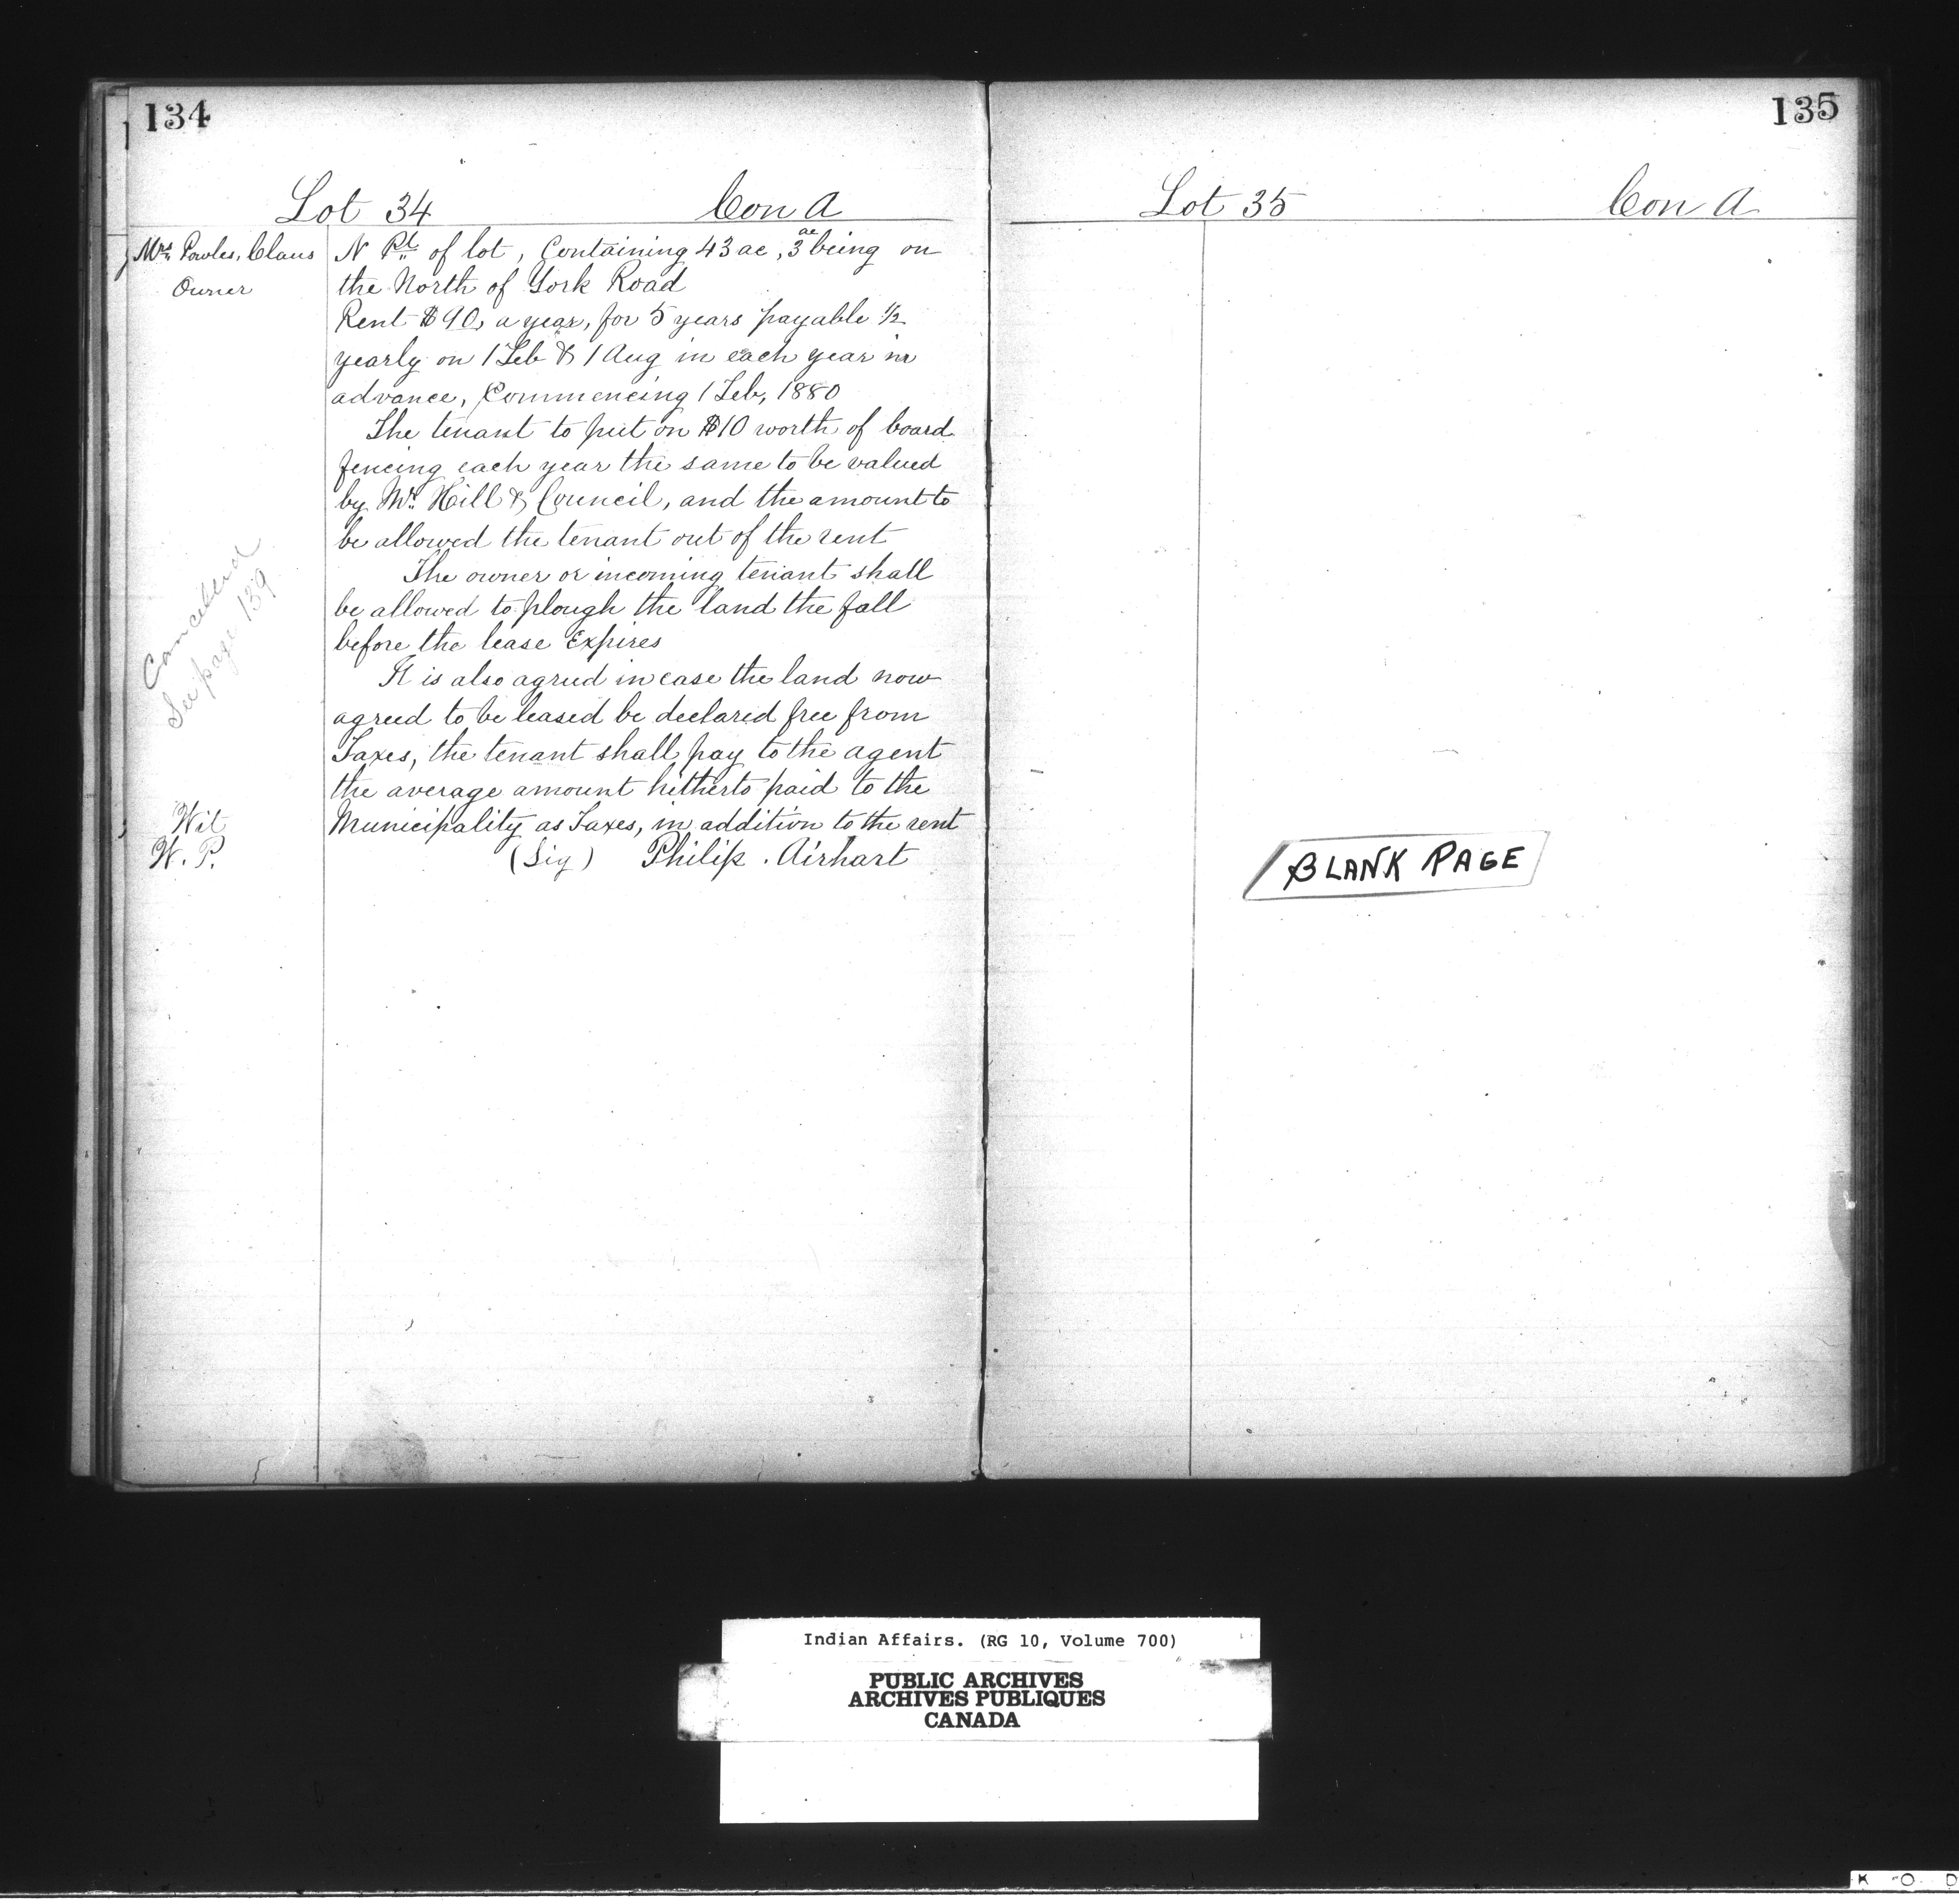 134
Lot 34 Con A
Mrs. Powles, Claus
Owner
N Pt. of lot, Containing 43 ac, 3 ac being on
the North of York Road
Rent $90, a year, for 5 years payable 1/2
yearly on 1 Feb & 1 Aug in each year in
advance, Commencing 1 Feb, 1880
The tenant to put on $10 worth of board
fencing each year the same to be valued
by Mr. Hill & Council, and the amount to
be allowed the tenant out of the rent
The owner or incoming tenant shall
be allowed to plough the land the fall
before the lease Expires
It is also agreed in case the land now
agreed to be leased be declared free from
Taxes, the tenant shall pay to the agent
the average amount hitherto paid to the
Municipality as Taxes, in addition to the rent
(Sig) Philip. Airhart
Cancelled
See page 139
Wit
W. P.
135
Lot 35 Con A
BLANK PAGE
Indian Affairs. (RG 10, Volume 700)
PUBLIC ARCHIVES
ARCHIVES PUBLIQUES
CANADA
K O D